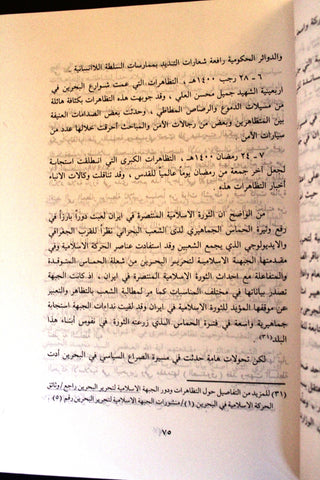 والدوائر الحكومية رافعة شعارات التنديد بممارسات السلطة اللاانسانية .
٦ - ٢٨ رجب ١٤٠٠هـ ، التظاهرات التي عمت شوارع البحرين في
اربعينية الشهيد جميل محسن العلي ، وقد جوبهت هذه التظاهرات بكثافة هائلة
من مسيلات الدموع والرصاص المطاطي ، وحدثت بعض الصدامات العنيفة
بين المتظاهرين وبعض من رجالات الأمن والمباحث احرقت خلالها عدد من
سيارات الأمن .
٧ - ٢٤ رمضان ١٤٠٠هـ ، التظاهرات الكبرى التي انطلقت استجابة
لجعل آخر جمعة من رمضان يوماً عالمياً للقدس ، وقد تناقلت وكالات الانباء
أخبار التظاهرات هذه .
من الواضح ان الثورة الاسلامية المنتصرة في ايران لعبت دوراً بارزاً في
رفع وتيرة الحماس الجماهيري لدى الشعب البحراني نظراً للقرب الجغرافي
والايديولوجي الذي يجمع الشعبين وقد استفادت عناصر الحركة الاسلامية وفي
مقدمتها الجبهة الاسلامية لتحرير البحرين من شعلة الحماس المتوقدة
والمتفاعلة مع احداث الثورة الاسلامية المنتصرة في ايران ، اذ كانت الجبهة
تصدر بياناتها في مختلف المناسبات كما مر لمطالبة الشعب بالتظاهر والتعبير
عن موقفها المؤيد للثورة الاسلامية في ايران وقد لقيت نداءات الجبهة استجابة
جماهيرية واسعة في فترة الحماس الذي زرعته الثورة في نفوس أبناء هذا
البلد (٣١) .
لكن تحولات هامة حدثت في مسيرة الصراع السياسي في البحرين أدت
(٣١) للمزيد من التفاصيل حول التظاهرات ودور الجبهة الاسلامية لتحرير البحرين راجع / وثائق
الحركة الاسلامية في البحرين (١) / منشورات الجبهة الاسلامية لتحرير البحرين رقم (٥)
٧٥